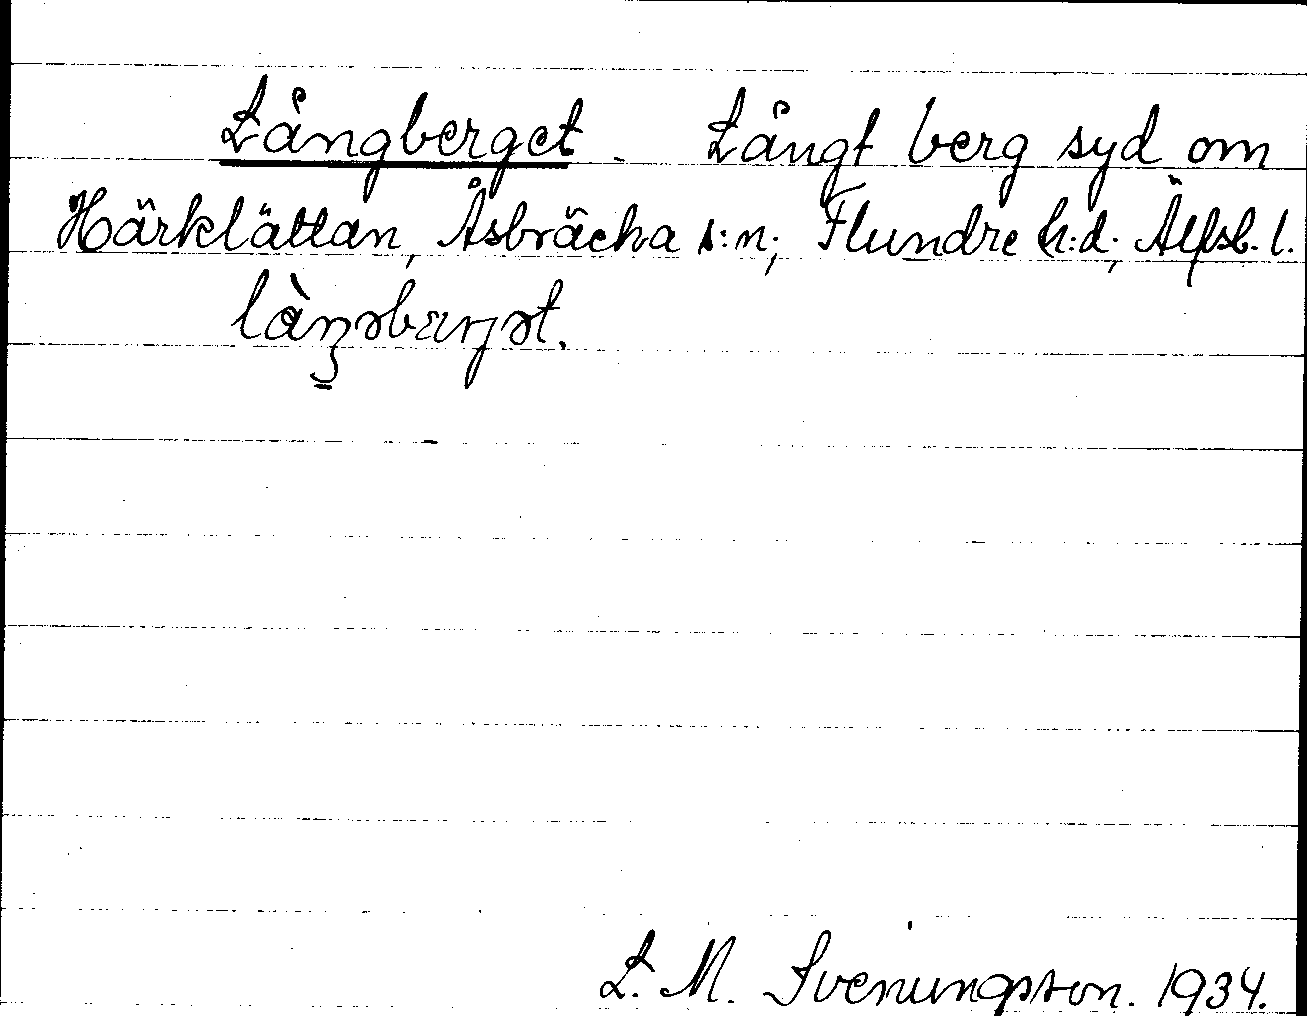 Långberget. Långt berg syd om
Härklättan, Åsbräcka s:n; Flundre h:d; Älfsb. l.
L. M. Svenungsson. 1934.